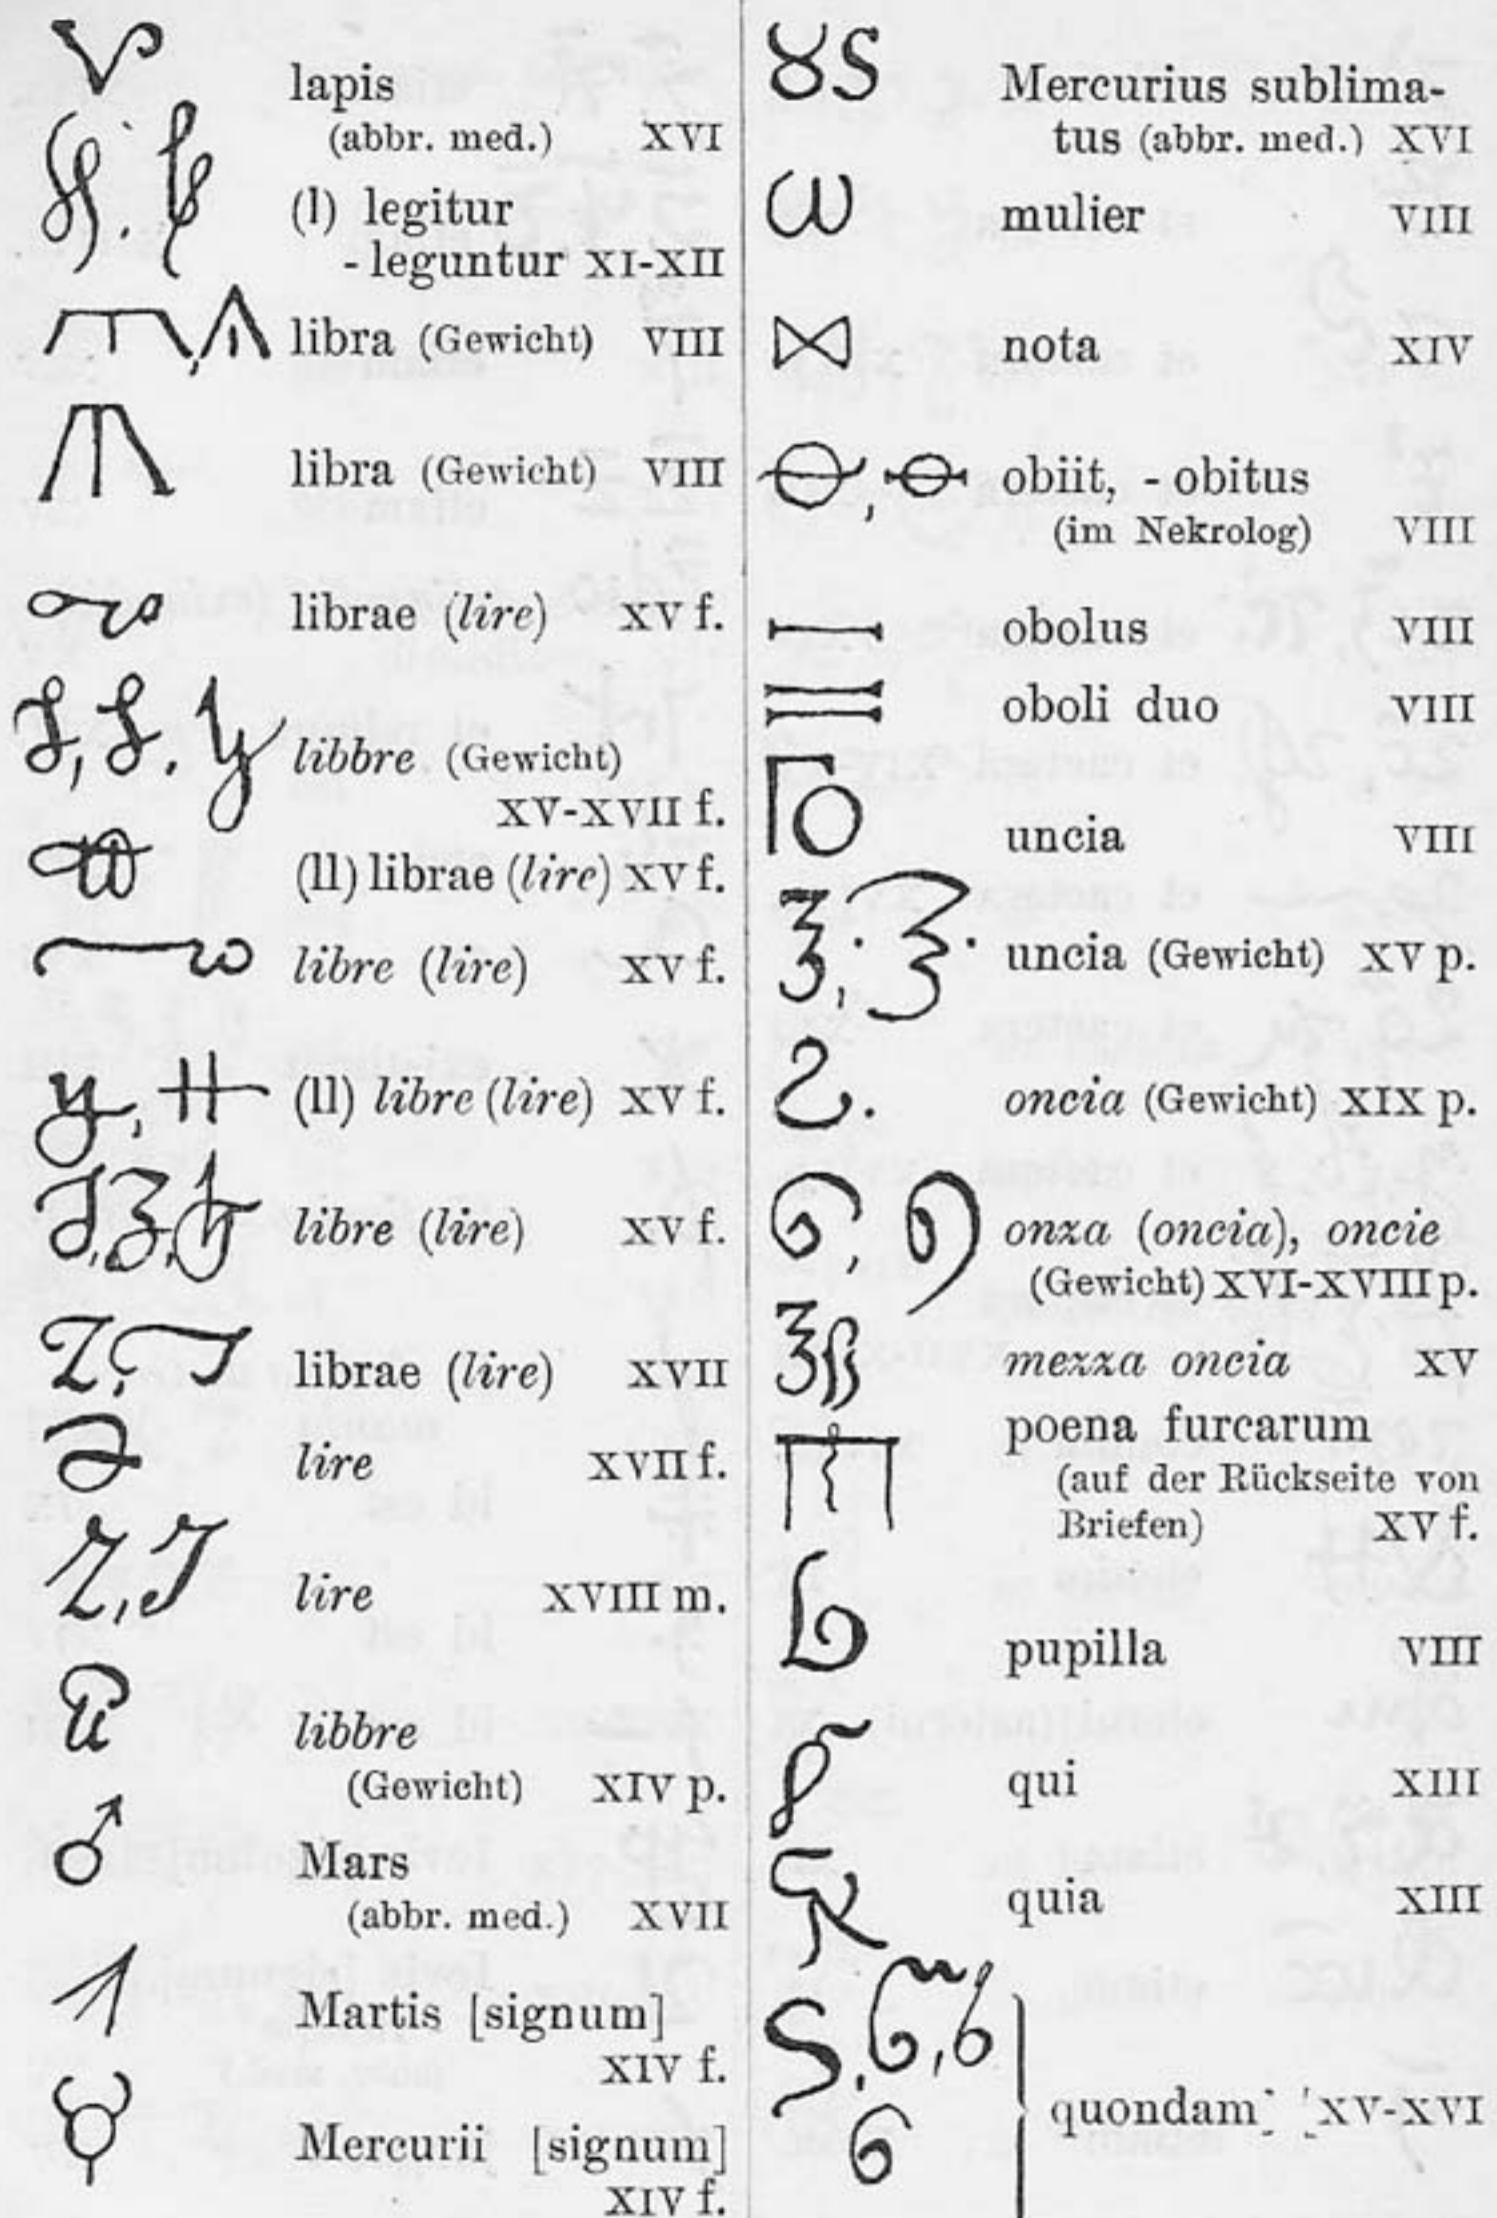 lapis
(abbr. med.) XVI
(l) legitur
- leguntur XI-XII
libra (Gewicht) VIII
libra (Gewicht) VIII
librae (lire) XV f.
libbre (Gewicht)
XV-XVII f.
(ll) librae (lire) XV f.
libre (lire) XV f.
(ll) libre (lire) XV f.
libre (lire) XV f.
librae (lire) XVII
lire XVII f.
lire XVIII m.
libbre
(Gewicht) XIV p.
♂ Mars
(abbr. med.) XVII
Martis [signum]
XIV f.
Mercurii [signum]
XIV f.
Mercurius sublima-
tus (abbr. med.) XVI
mulier VIII
nota XIV
obiit, - obitus
(im Nekrolog) VIII
obolus VIII
oboli duo VIII
uncia VIII
uncia (Gewicht) XV p.
oncia (Gewicht) XIX p.
onza (oncia), oncie
(Gewicht) XVI-XVIII p.
mezza oncia XV
poena furcarum
(auf der Rückseite von
Briefen) XV f.
pupilla VIII
qui XIII
quia XIII
quondam XV-XVI